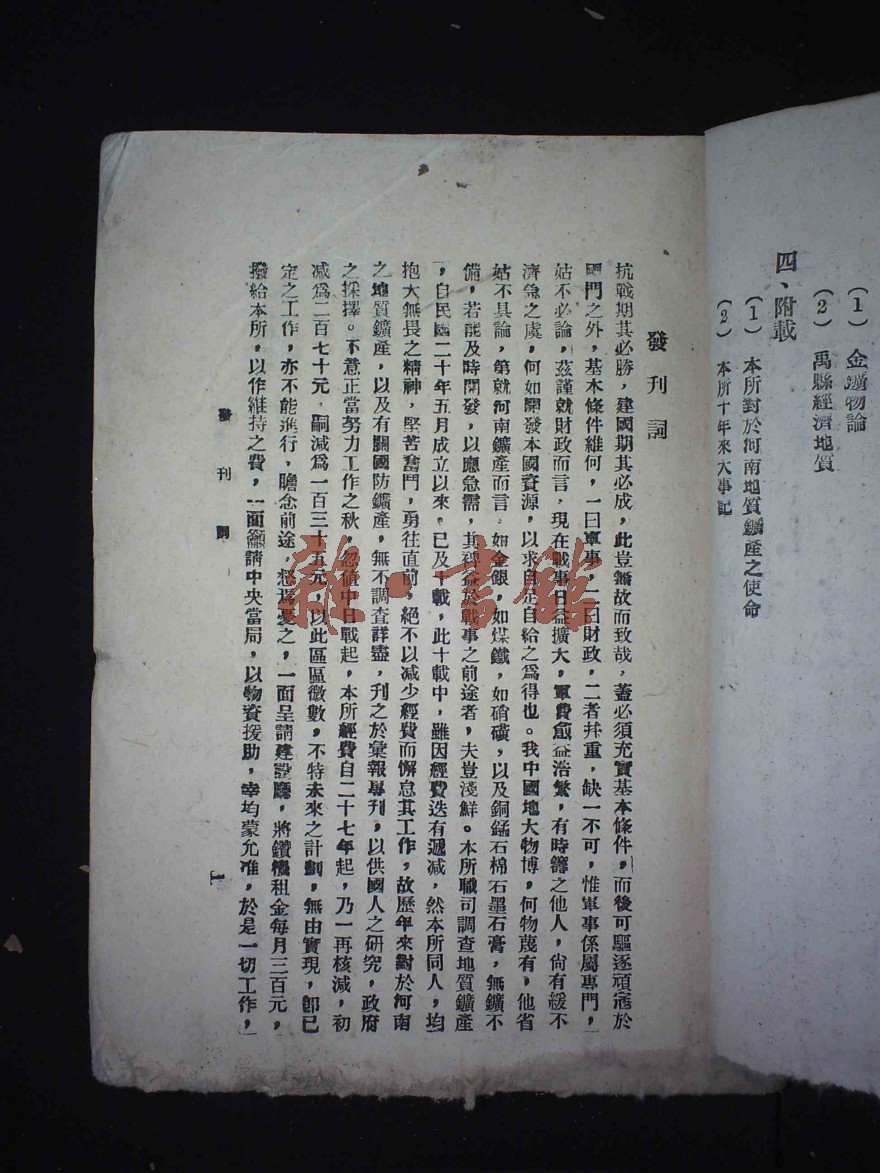 (1) 金鑛物論
(2) 禹縣經濟地質
四、附載
(1) 本所對於河南地質鑛產之使命
(2) 本所十年來大事記
發刊詞
抗戰期其必勝，建國期其必成，此豈無故而致哉，蓋必須充實基本條件，而後可驅逐頑寇於
國門之外，基本條件維何，一曰軍事，一曰財政，二者幷重，缺一不可，惟軍事係屬專門，
姑不必論，茲謹就財政而言，現在戰事日益擴大，軍費愈益浩繁，有時籌之他人，尙有緩不
濟急之虞，何如開發本國資源，以求自足自給之爲得也。我中國地大物博，何物蔑有，他省
姑不具論，第就河南鑛產而言，如金銀，如煤鐵，如硝磺，以及銅錳石棉石墨石膏，無鑛不
備，若能及時開發，以應急需，其裨益於戰事之前途者，夫豈淺鮮。本所職司調查地質鑛產
，自民國二十年五月成立以來，已及十載，此十載中，雖因經費迭有遞減，然本所同人，均
抱大無畏之精神，堅苦奮鬥，勇往直前，絕不以減少經費而懈怠其工作，故歷年來對於河南
之地質鑛產，以及有關國防鑛產，無不調查詳盡，刊之於彙報專刊，以供國人之研究，政府
之採擇。不意正當努力工作之秋，忽値中日戰起，本所經費自二十七年起，乃一再核減，初
減爲二百七十元，嗣減爲一百三十五元，以此區區微數，不特未來之計劃，無由實現，卽已
定之工作，亦不能進行，瞻念前途，惄焉憂之，一面呈請建設廳，將鑽機租金每月三百元，
撥給本所，以作維持之費，一面籲請中央當局，以物資援助，幸均蒙允准，於是一切工作，
發刊詞
1
雜·書館